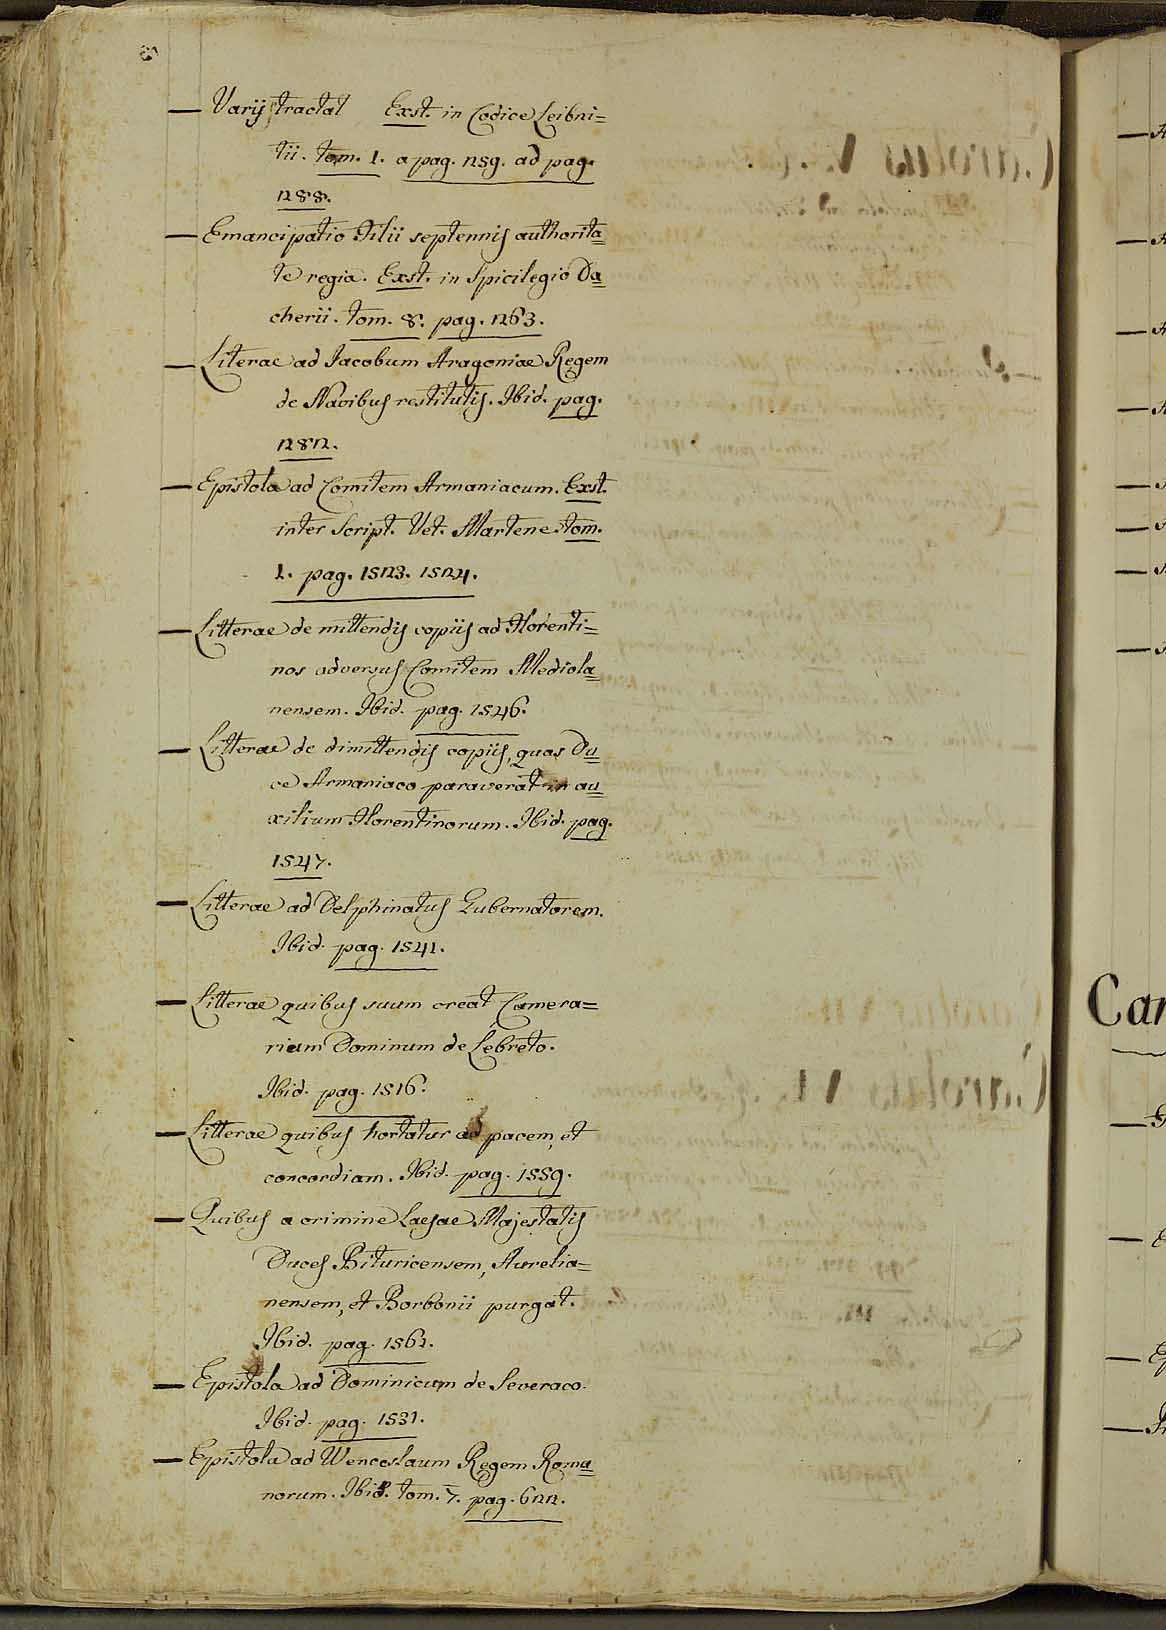 — Varij tractat Exst. in Codice Leibni=
tii. tom. 1. a pag. 259. ad pag.
288.
— Emancipatio Filii septennis authorita=
te regia. Exst. in Spicilegio Da=
cherii. tom. 8. pag. 263.
— Literae ad Jacobum Aragoniae Regem
de Navibus restitutis. Ibid. pag.
282.
— Epistola ad Comitem Armaniacum. Exst.
inter Script. Vet. Martene. tom.
1. pag. 1523. 1524.
— Litterae de mittendis copiis ad Florenti=
nos adversus Comitem Mediola=
nensem. Ibid. pag. 1546.
— Litterae de dimittendis copiis, quas Du=
ce Armaniaco paraverat in au=
xilium Florentinorum. Ibid. pag.
1547.
— Litterae ad Delphinatus Gubernatorem.
Ibid. pag. 1541.
— Litterae quibus suum creat Camera=
rium Dominum de Lebreto.
Ibid. pag. 1516.
— Litterae quibus hortatur ad pacem, et
concordiam. Ibid. pag. 1559.
— Quibus a crimine Laesae Majestatis
Duces Bituricensem, Aurelia=
nensem, et Borbonii purgat.
Ibid. pag. 1561.
— Epistola ad Dominicum de Severaco.
Ibid. pag. 1531.
— Epistola ad Wenceslaum Regem Roma=
norum. Ibid. tom. 7. pag. 622.
Car